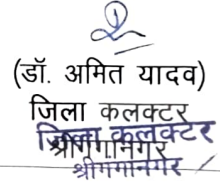 (डॉ. अमित यादव)
जिला कलक्टर
जिला कलक्टर
श्रीगंगानगर
श्रीगंगानगर